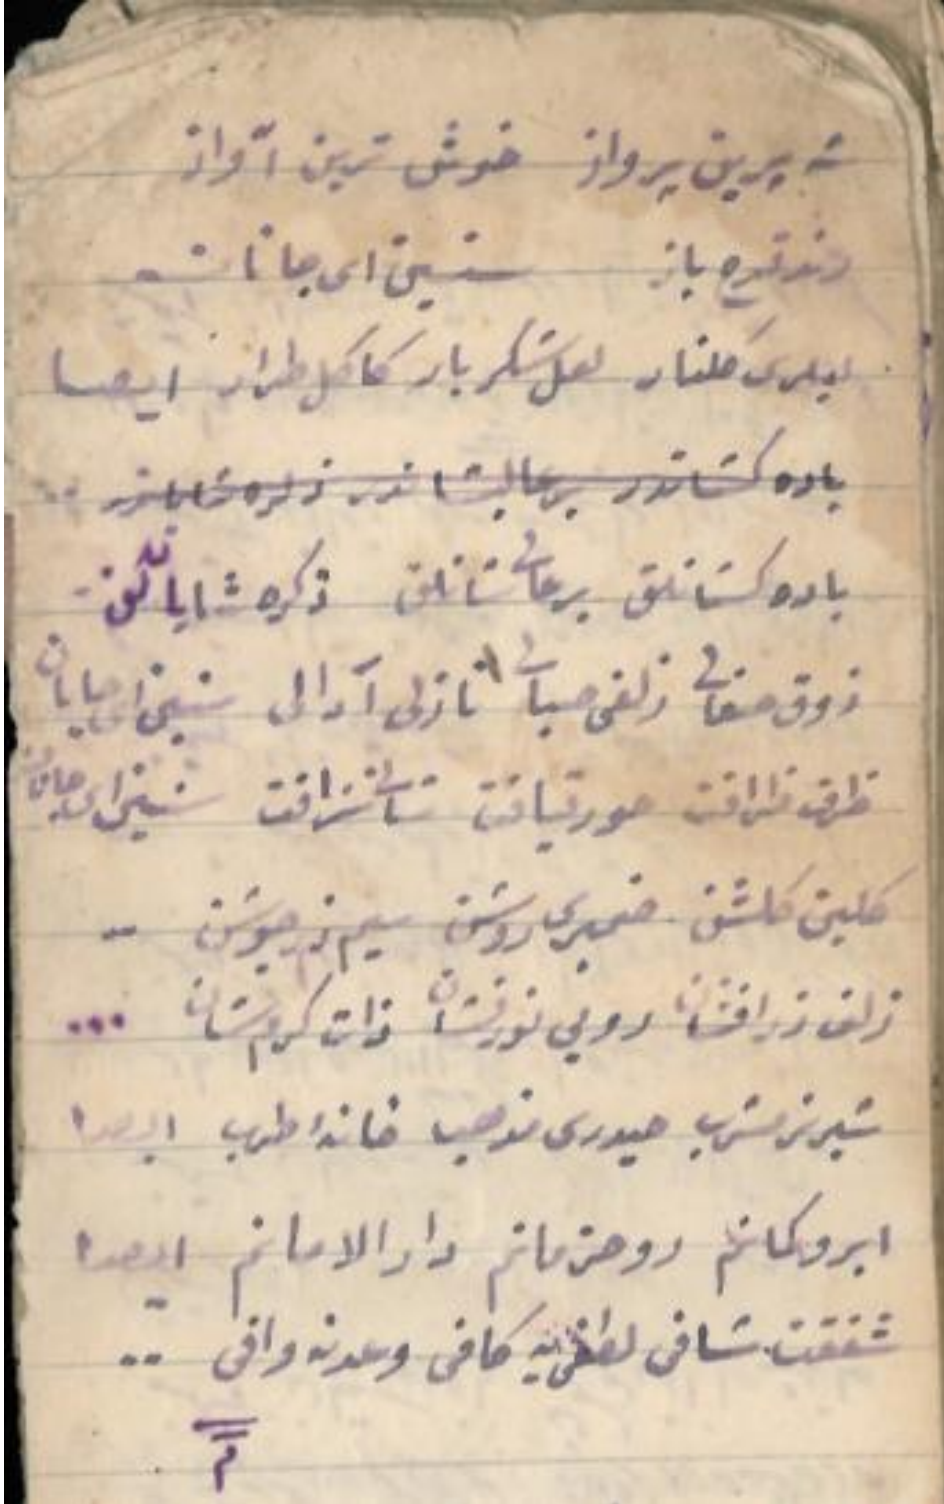 شه پرین پرواز خوش ترین آواز
باز سنسین ای جانان
لبلری گلنار لعل شکر بار کاکل طرار ایضا
باده کشاندر بر عالیشاندر ذکره شایاندر ..
باده کشانلق بر عالیشانلق ذکره شایانلق ..
ذوق صفالی زلفی صبالی نازلی آدالی سنسین ای جانان
ظرافت حور قیافت نزاکت سنسین ای جانان
گلبن گلشن ضمیری روشن سیم زر جوشن ..
زلف زر افشان رویی نور فشان ذات کرم شان ...
شیرین مشرب حیدری مذهب طرب ایضا
ابرو کمانم روح زمانم دار الامانم ایضا
شفقت شافی لطفی کافی وعدنه وافی ..
م